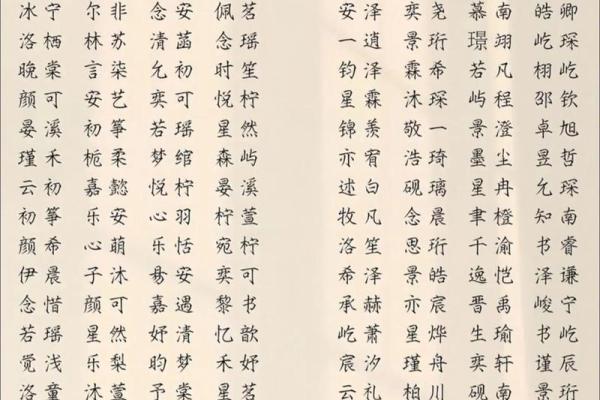 冰宁 尔非 念安 佩茗 安泽 奕尧 慕南 皓卿
洛栖 林苏 清菡 念瑶 一逍 景珩 璟翊 屹琛
晚棠 言柒 允初 时笙 钧泽 霖希 若凡 栩屹
颜可 安艺 奕可 悦柠 星霖 沐琛 屿程 邵钦
晏溪 初筝 若瑶 星然 锦羡 敬一 景澄 卓旭
瑾禾 栀柔 梦绾 森屿 亦宥 浩琦 墨尘 昱哲
云初 嘉懿 悦柠 晏溪 述白 砚璃 星冉 允琛
初筝 乐安 心羽 柠萱 牧凡 念晨 聿橙 知南
颜希 心萌 乐恬 宛柠 洛笙 思珩 千渝 书睿
伊晨 子沐 易安 奕可 希泽 景皓 逸恺 泽谦
念惜 颜可 嘉遇 黎书 承赫 亦宸 晋禹 峻宁
若瑶 星然 妤清 忆歆 屹萧 星烨 生瑜 书屹
觉浅 乐梨 昀梦 禾妤 宸汐 瑾舟 奕轩 谨辰
洛童 沐萱 予棠 星茗 云礼 柏川 砚南 景珩